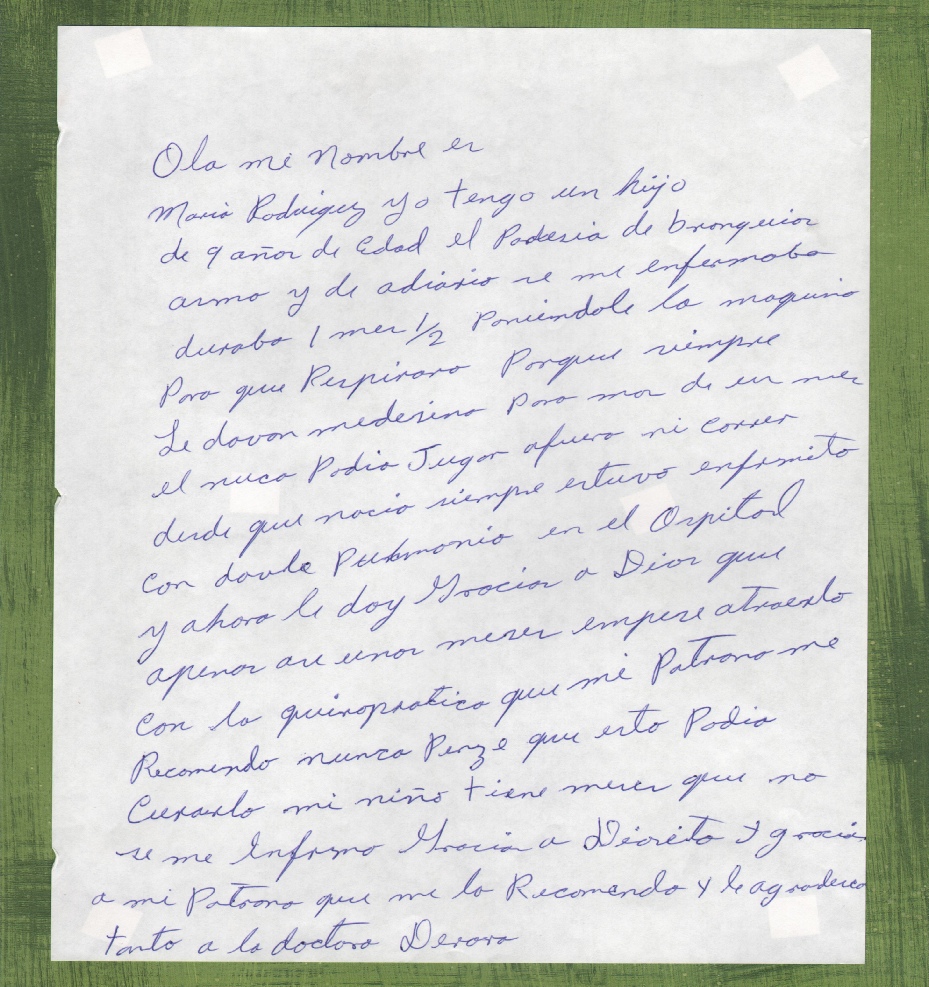 Ola mi nombre es
Maria Rodriguez yo tengo un hijo
de 9 años de Edad el Padesia de bronquios
asma y de adiario se me enfermaba
duraba 1 mes 1/2 Poniendole la maquina
Para que Respirara Porque siempre
Le davan medesina Para mas de un mes
el nuca Podia Jugar afuera ni correr
desde que nacio siempre estuvo enfermito
Con davle Pulmonia en el Ospital
y ahora le doy Gracias a Dios que
apenas ase unos meses empese atraerlo
Con la quiropratica que mi Patrona me
Recomendo nunca Penze que esto Podia
Curarlo mi niño tiene meses que no
se me Enfrma Gracia a Diosito y gracias
a mi Patrona que me la Recomendo y le agradesco
tanto a la doctora Derora